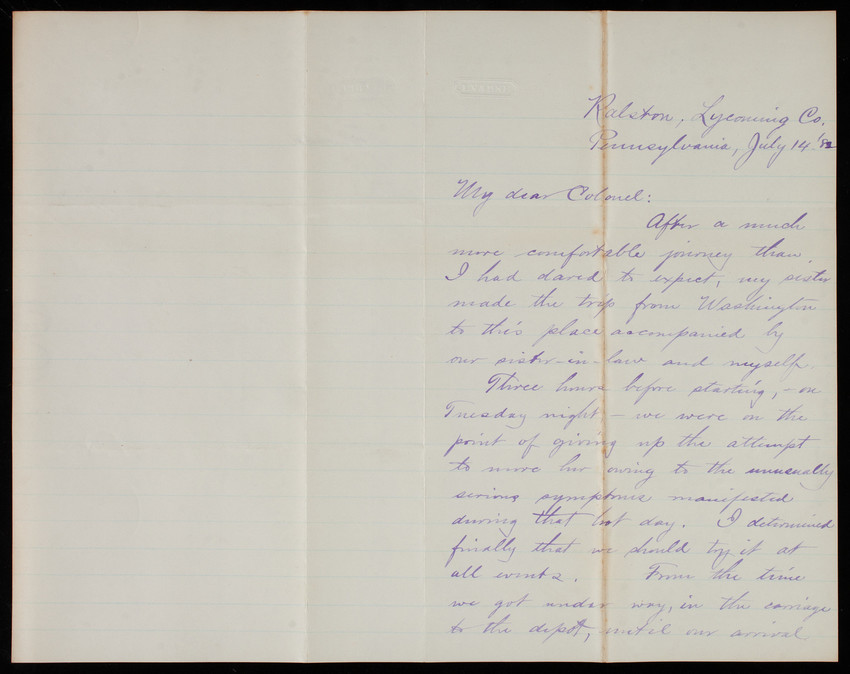 Ralston, Lycoming Co.
Pennsylvania, July 14. '82
My dear Colonel:
After a much
more comfortable journey than
I had dared to expect, my sister
made the trip from Washington
to this place accompanied by
our sister-in-law and myself.
Three hours before starting, - on
Tuesday night - we were on the
point of giving up the attempt
to move her owing to the unusually
serious symptoms manifested
during that hot day. I determined
finally that we should try it at
all events. From the time
we got under way, in the carriage
to the depot, until our arrival